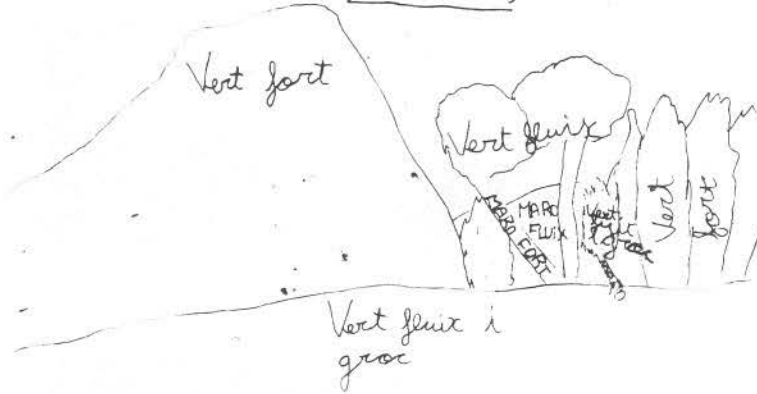 Vert fort
Vert fluix
MARO FORT
MARO
FLUIX
Vert
Vert
fort
Vert fluix i
groc